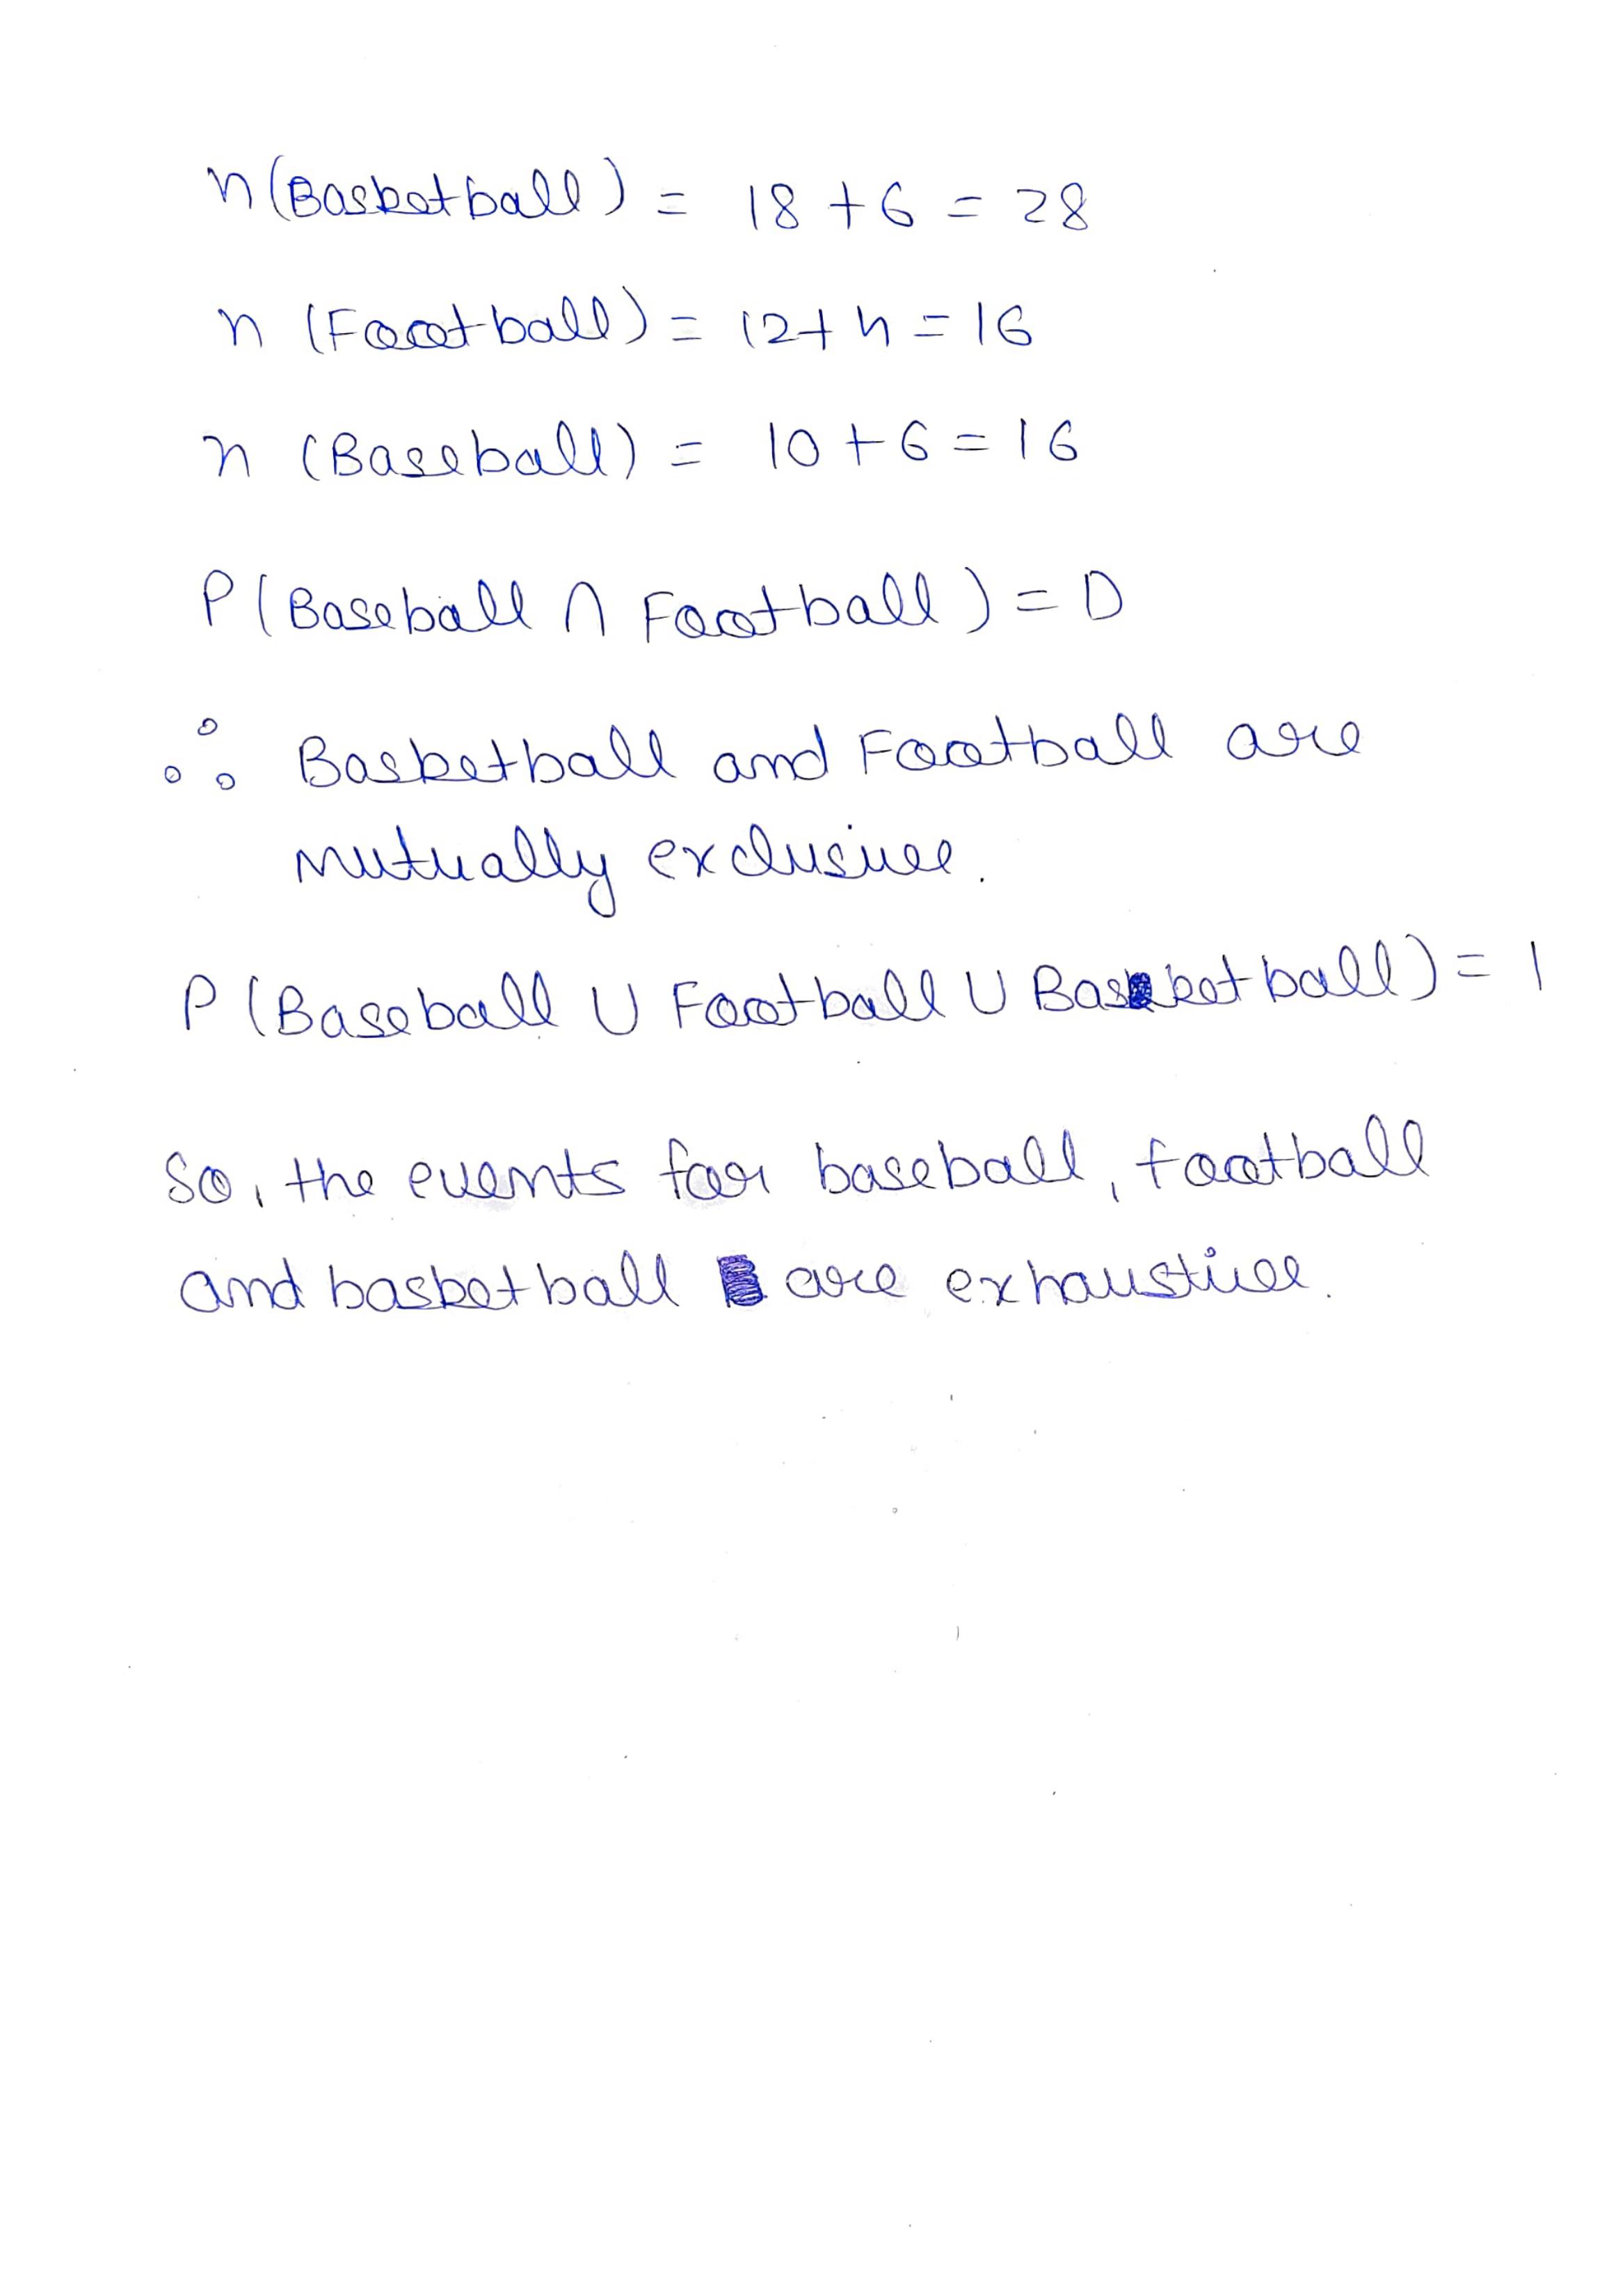 n(Basketball) = 18 + 6 = 28
n (Football) = 12 + 4 = 16
n (Baseball) = 10 + 6 = 16
P(Baseball ∩ Football) = 0
∴ Basketball and Football are
mutually exclusive.
P(Baseball ∪ Football ∪ Basketball) = 1
So, the events for baseball, football
and basketball are exhaustive.